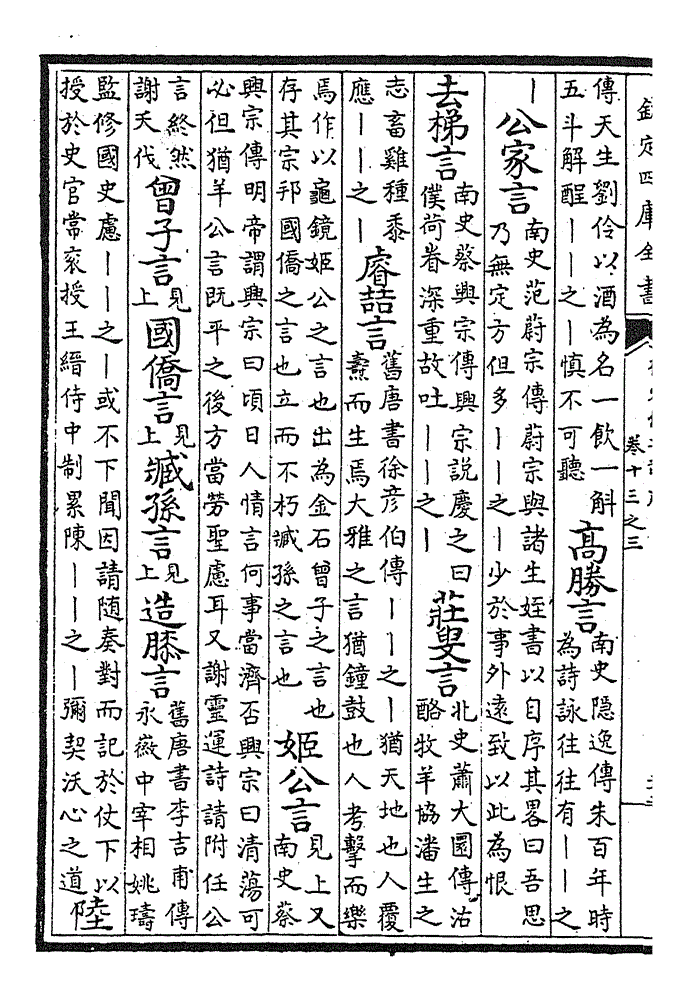 欽定四庫全書
卷十三之三
傳天生劉伶以酒為名一飲一斛
五斗解酲丨丨之丨慎不可聽
高勝言
南史隱逸傳朱百年時
為詩詠往往有丨丨之
丨
公家言
南史范蔚宗傳蔚宗與諸生姪書以自序其畧曰吾思
乃無定方但多丨丨之丨少於事外遠致以此為恨
去梯言
南史蔡興宗傳興宗說慶之曰
僕荷眷深重故吐丨丨之丨
莊叟言
北史蕭大圜傳沽
酪牧羊協潘生之
志畜雞種黍
應丨丨之丨
睿喆言
舊唐書徐彦伯傳丨丨之丨猶天地也人覆
燾而生焉大雅之言猶鐘鼓也人考擊而樂
焉作以龜鏡姬公之言也出為金石曾子之言也
存其宗邦國僑之言也立而不朽臧孫之言也
姬公言
見上又
南史蔡
興宗傳明帝謂興宗曰頃日人情言何事當濟否興宗曰清蕩可
必但猶羊公言既平之後方當勞聖慮耳又謝靈運詩請附任公
言終然
謝天伐
曾子言
見上
國僑言
見上
臧孫言
見上
造膝言
舊唐書李吉甫傳
永徽中宰相姚璹
監修國史慮丨丨之丨或不下聞因請随奏對而記於仗下以
授於史官常衮授王縉侍中制累陳丨丨之丨彌契沃心之道
陸